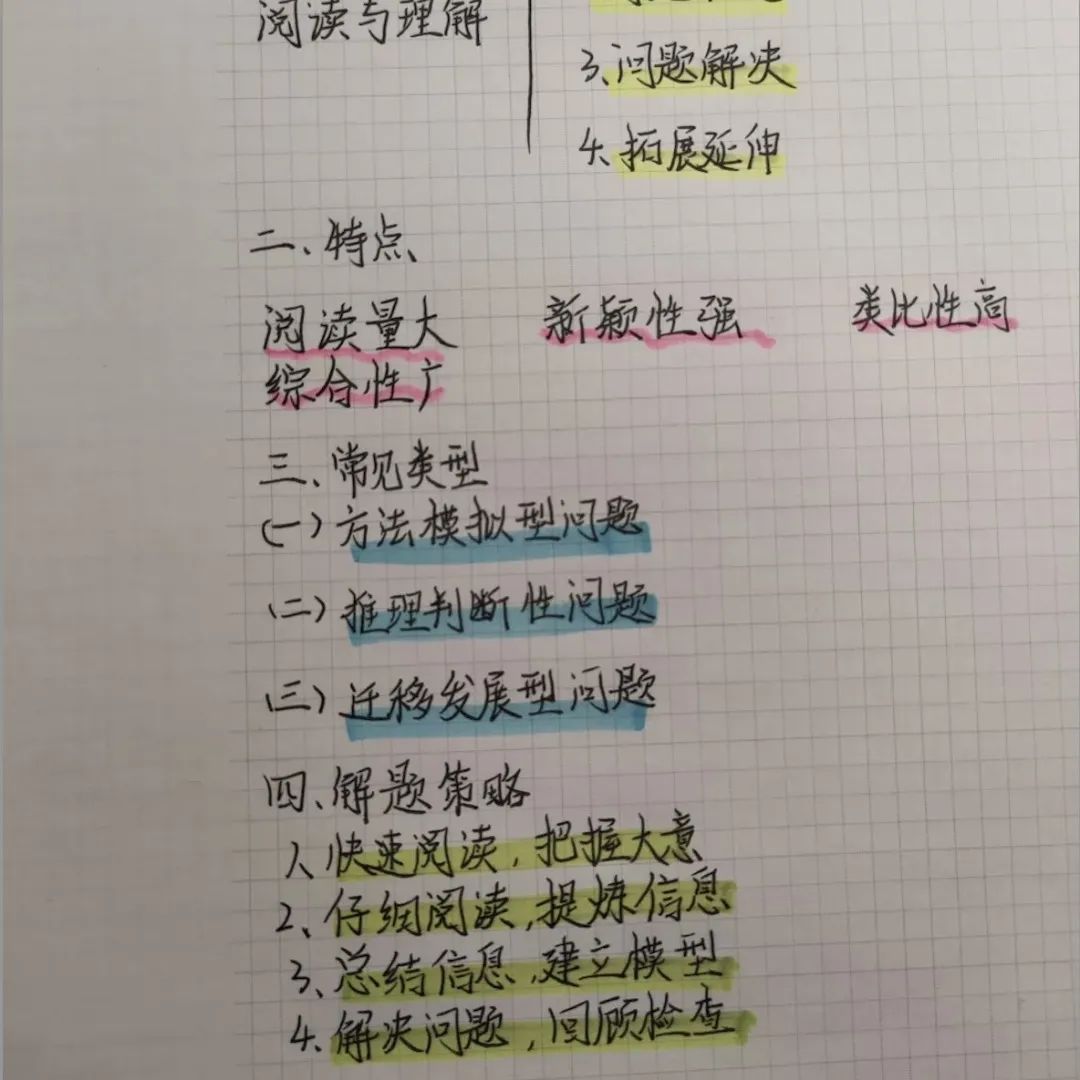 阅读与理解
3、问题解决
4、拓展延伸
二、特点、
阅读量大 新颖性强 类比性高
综合性广
三、常见类型
(一)方法模拟型问题
(二)推理判断性问题
(三)迁移发展型问题
四、解题策略
1、快速阅读，把握大意
2、仔细阅读，提炼信息
3、总结信息，建立模型
4、解决问题，回顾检查